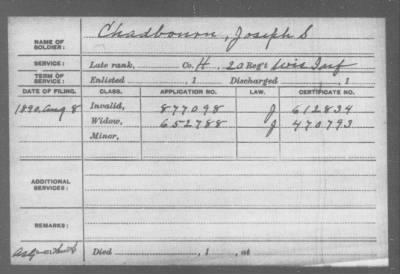 NAME OF SOLDIER: Chadbourn, Joseph S
SERVICE: Late rank, Co. H, 20 Reg't Wis Inf
TERM OF SERVICE: Enlisted , 1 Discharged , 1
DATE OF FILING. CLASS. APPLICATION NO. LAW. CERTIFICATE NO.
1890, Aug 8 Invalid, 877098 J 612834
Widow, 652788 J 470793
Minor,
ADDITIONAL SERVICES:
REMARKS:
Died , 1 , at